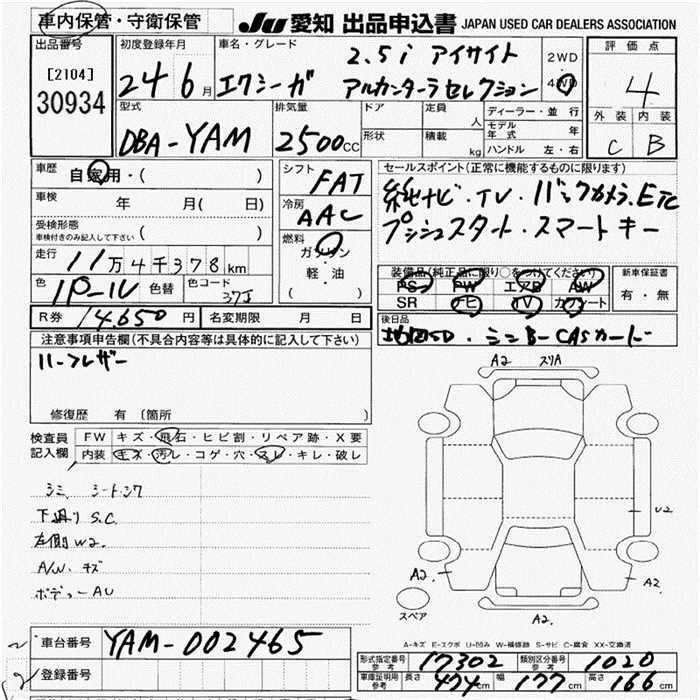 車内保管・守衛保管
JU 愛知 出品申込書 JAPAN USED CAR DEALERS ASSOCIATION
出品番号
[2104]
30934
初度登録年月
24 6月
車名・グレード
2.5i アイサイト
エクシーガ アルカンターラセレクション
2WD
4WD
評価点
4
外装 内装
C B
型式
DBA-YAM
排気量
2500cc
ドア
形状
定員
人
積載
kg
ディーラー・並行
モデル年式 年
ハンドル 左・右
車歴
自家用・( )
車検
年 月( 日)
受検形態
車検付きのみ記入して下さい ( )
走行
11万4千378km
色
パール
色替
色コード
37J
シフト
FAT
冷房
AAC
燃料
ガソリン
・
軽・油
( )
セールスポイント(正常に機能するものに限ります)
純ナビ・TV・バックカメラ、ETC
プッシュスタート・スマートキー
装備品(純正品に限り○をつけてください)
PS PW エアB AW
SR ナビ TV カワシート
新車保証書
有・無
R券 14.650円
名変期限 月 日
後日品
地図SD・ミニB-CASカード
注意事項申告欄(不具合内容等は具体的に記入して下さい)
ハーフレザー
修復歴 有 〔箇所 〕
検査員
記入欄
FW キズ・飛石・ヒビ割・リペア跡・X要
内装 キズ・汚レ・コゲ・穴・スレ・キレ・破レ
シミ シートシワ
下廻り S.C.
左側 W2.
A/W. キズ
ボデューAU
A2 スリA
U2
A2.
A2
A2.
スペア
A-キズ E-エクボ U-凹み W-補修跡 S-サビ C-腐食 XX-交換済
車台番号 YAM-002465
登録番号
形式指定番号 参考 17302
類別区分番号 参考 1020
車庫証明用 参考 長さ 474cm 幅 177cm 高さ 166cm